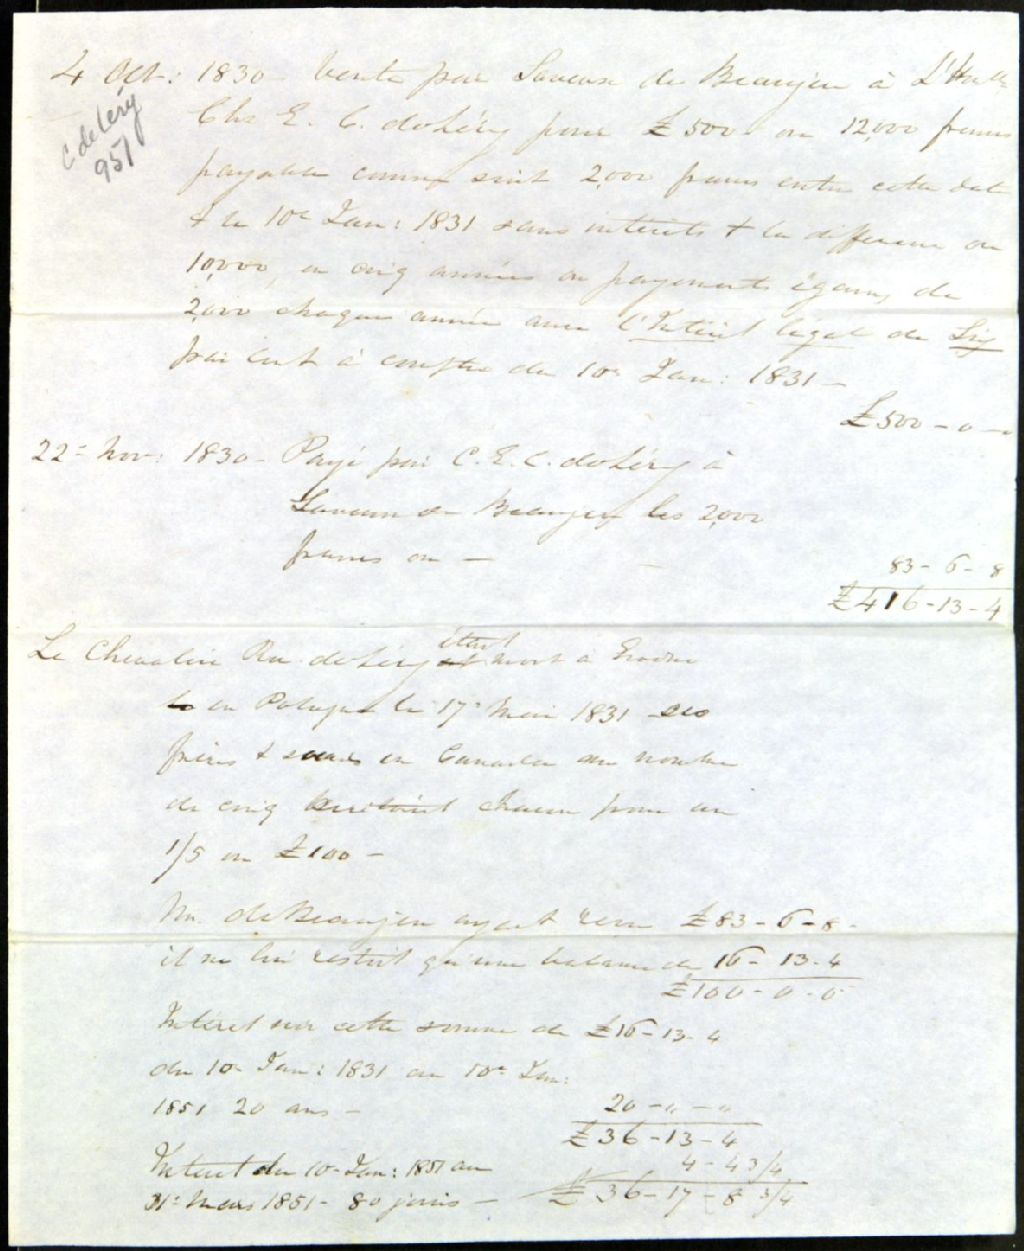 4 Oct: 1830 Vente par Saveuse de Beaujeu à L'Hon
C. deLéry
951
Chs E. C. deLéry pour £500 ou 12,000 francs
payable comme suit 2,000 francs entre cette date
& le 10e Jan: 1831 sans intérêts & la différence ou
10,000 en cinq années ou payements égaux de
2,000 chaque année avec l'Intérêt légal de Six
par Cent à compter du 10e Jan: 1831 —
£500 - 0 - 0
22e Nov: 1830 - Payé par C. E. C. deLéry à
Saveuse de Beaujeu les 2,000
francs ou —
83 - 6 - 8
£416 - 13 - 4
Le Chevalier deLéry étant mort à
en Pologne le 17e Mai 1831 ses
frères & soeurs en Canada au nombre
de cinq héritoient chacun pour un
1/5 ou £100 -
Mr. deBeaujeu ayant reçu £83 - 6 - 8 -
il ne lui restoit qu'une balance de 16 - 13 - 4
£100 - 0 - 0
Intérêt sur cette somme de £16 - 13 - 4
du 10e Jan: 1831 au 10e Jan:
1851 20 ans - 20 - " - "
£36 - 13 - 4
Intérêt du 10 Jan: 1851 au 4 - 4 3/4
31e Mars 1851 - 80 jours — £36 - 17 - 8 3/4